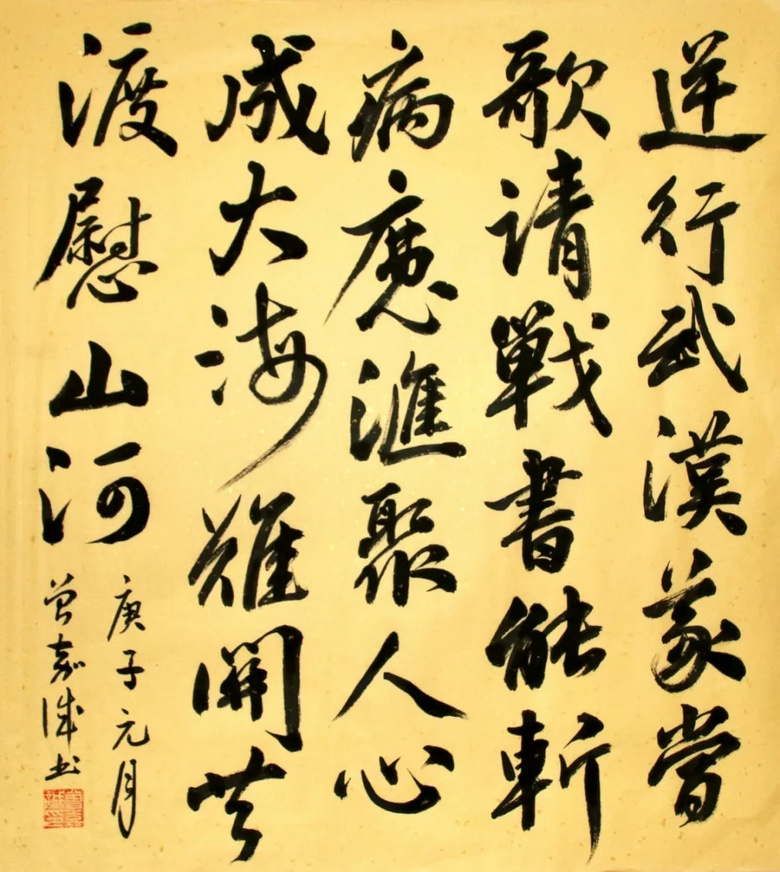 逆行武漢義當
歌請戰書能斬
病魔滙聚人心
成大海難關共
渡慰山河
庚子元月
曾嘉誠书